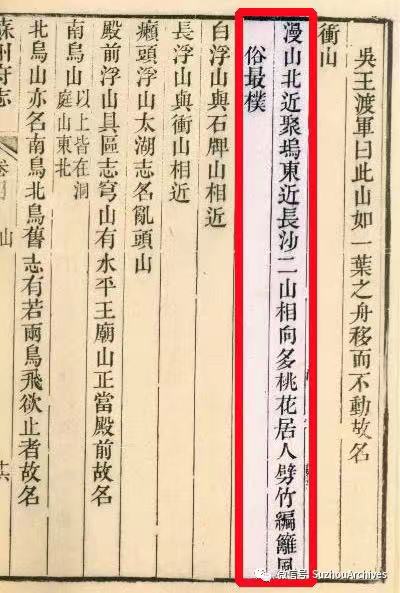 吳王渡軍曰此山如一葉之舟移而不動故名
衝山
漫山北近聚塢東近長沙二山相向多桃花居人劈竹編籬風
俗最樸
白浮山與石牌山相近
長浮山與衝山相近
癩頭浮山太湖志名亂頭山
殿前浮山具區志穹山有水平王廟山正當殿前故名
南鳥山以上皆在洞
庭山東北
北鳥山亦名南鳥北鳥舊志有若兩鳥飛欲止者故名
蘇州府志
山
微信号 SuzhouArchives